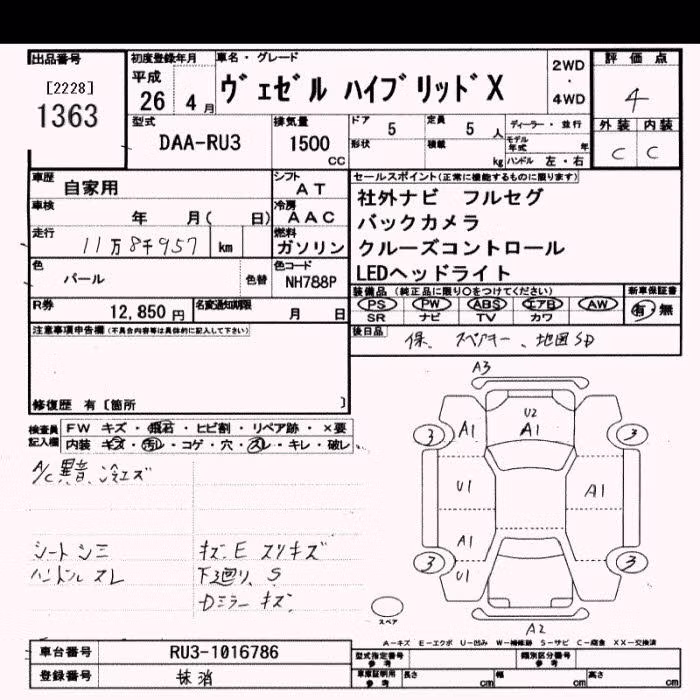 出品番号 初度登録年月 車名・グレード 2WD・4WD 評価点
[2228] 1363 平成 26 4月 ヴェゼル ハイブリッドX 4
型式 排気量 ドア 5 定員 5人 ディーラー・並行 外装 内装
DAA-RU3 1500 cc 形状 積載 kg モデル年式 年 ハンドル 左・右 C C
車歴 自家用 シフト AT セールスポイント(正常に機能するものに限ります)
車検 年 月( 日) 冷房 AAC 社外ナビ フルセグ
バックカメラ
走行 11万8千957 km 燃料 ガソリン クルーズコントロール
色 パール 色替 色コード NH788P LEDヘッドライト
装備品(純正品に限り○をつけてください) 新車保証書
R券 12,850円 名変通知期限 月 日 PS PW ABS エアB AW 有・無
SR ナビ TV カワ
注意事項申告欄(不具合内容等は具体的に記入して下さい) 後日品 保、スペアキー、地図SD
修復歴 有〔箇所 〕
検査員記入欄 FW キズ・飛石・ヒビ割・リペア跡・×要
内装 キズ・汚レ・コゲ・穴・スレ・キレ・破レ
A/C異音、冷エズ
シートシミ キズ、E スリキズ
ハンドルスレ 下廻り、S
Dミラーキズ
A3
U2
A1 A1
3 3
U1 A1
A1
3 3
U1
スペア
A2
A-キズ E-エクボ U-凹み W-補修跡 S-サビ C-腐食 XX-交換済
車台番号 RU3-1016786 型式指定番号 参考 類別区分番号 参考
登録番号 抹消 車庫証明用 参考 長さ cm 幅 cm 高さ cm